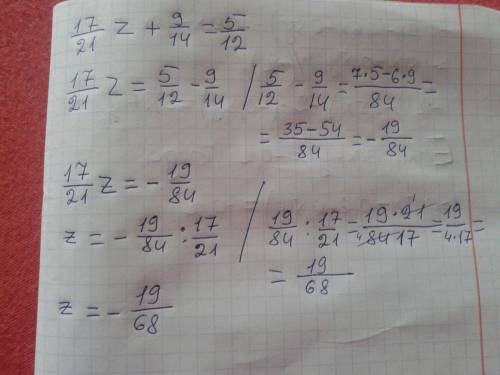 17/21 z + 9/14 = 5/12
17/21 z = 5/12 - 9/14 / 5/12 - 9/14 = 7·5-6·9/84 =
= 35-54/84 = - 19/84
17/21 z = - 19/84
z = - 19/84 : 17/21 / 19/84 : 17/21 = 19·21 1/4 84·17 = 19/4·17 =
= 19/68
z = - 19/68